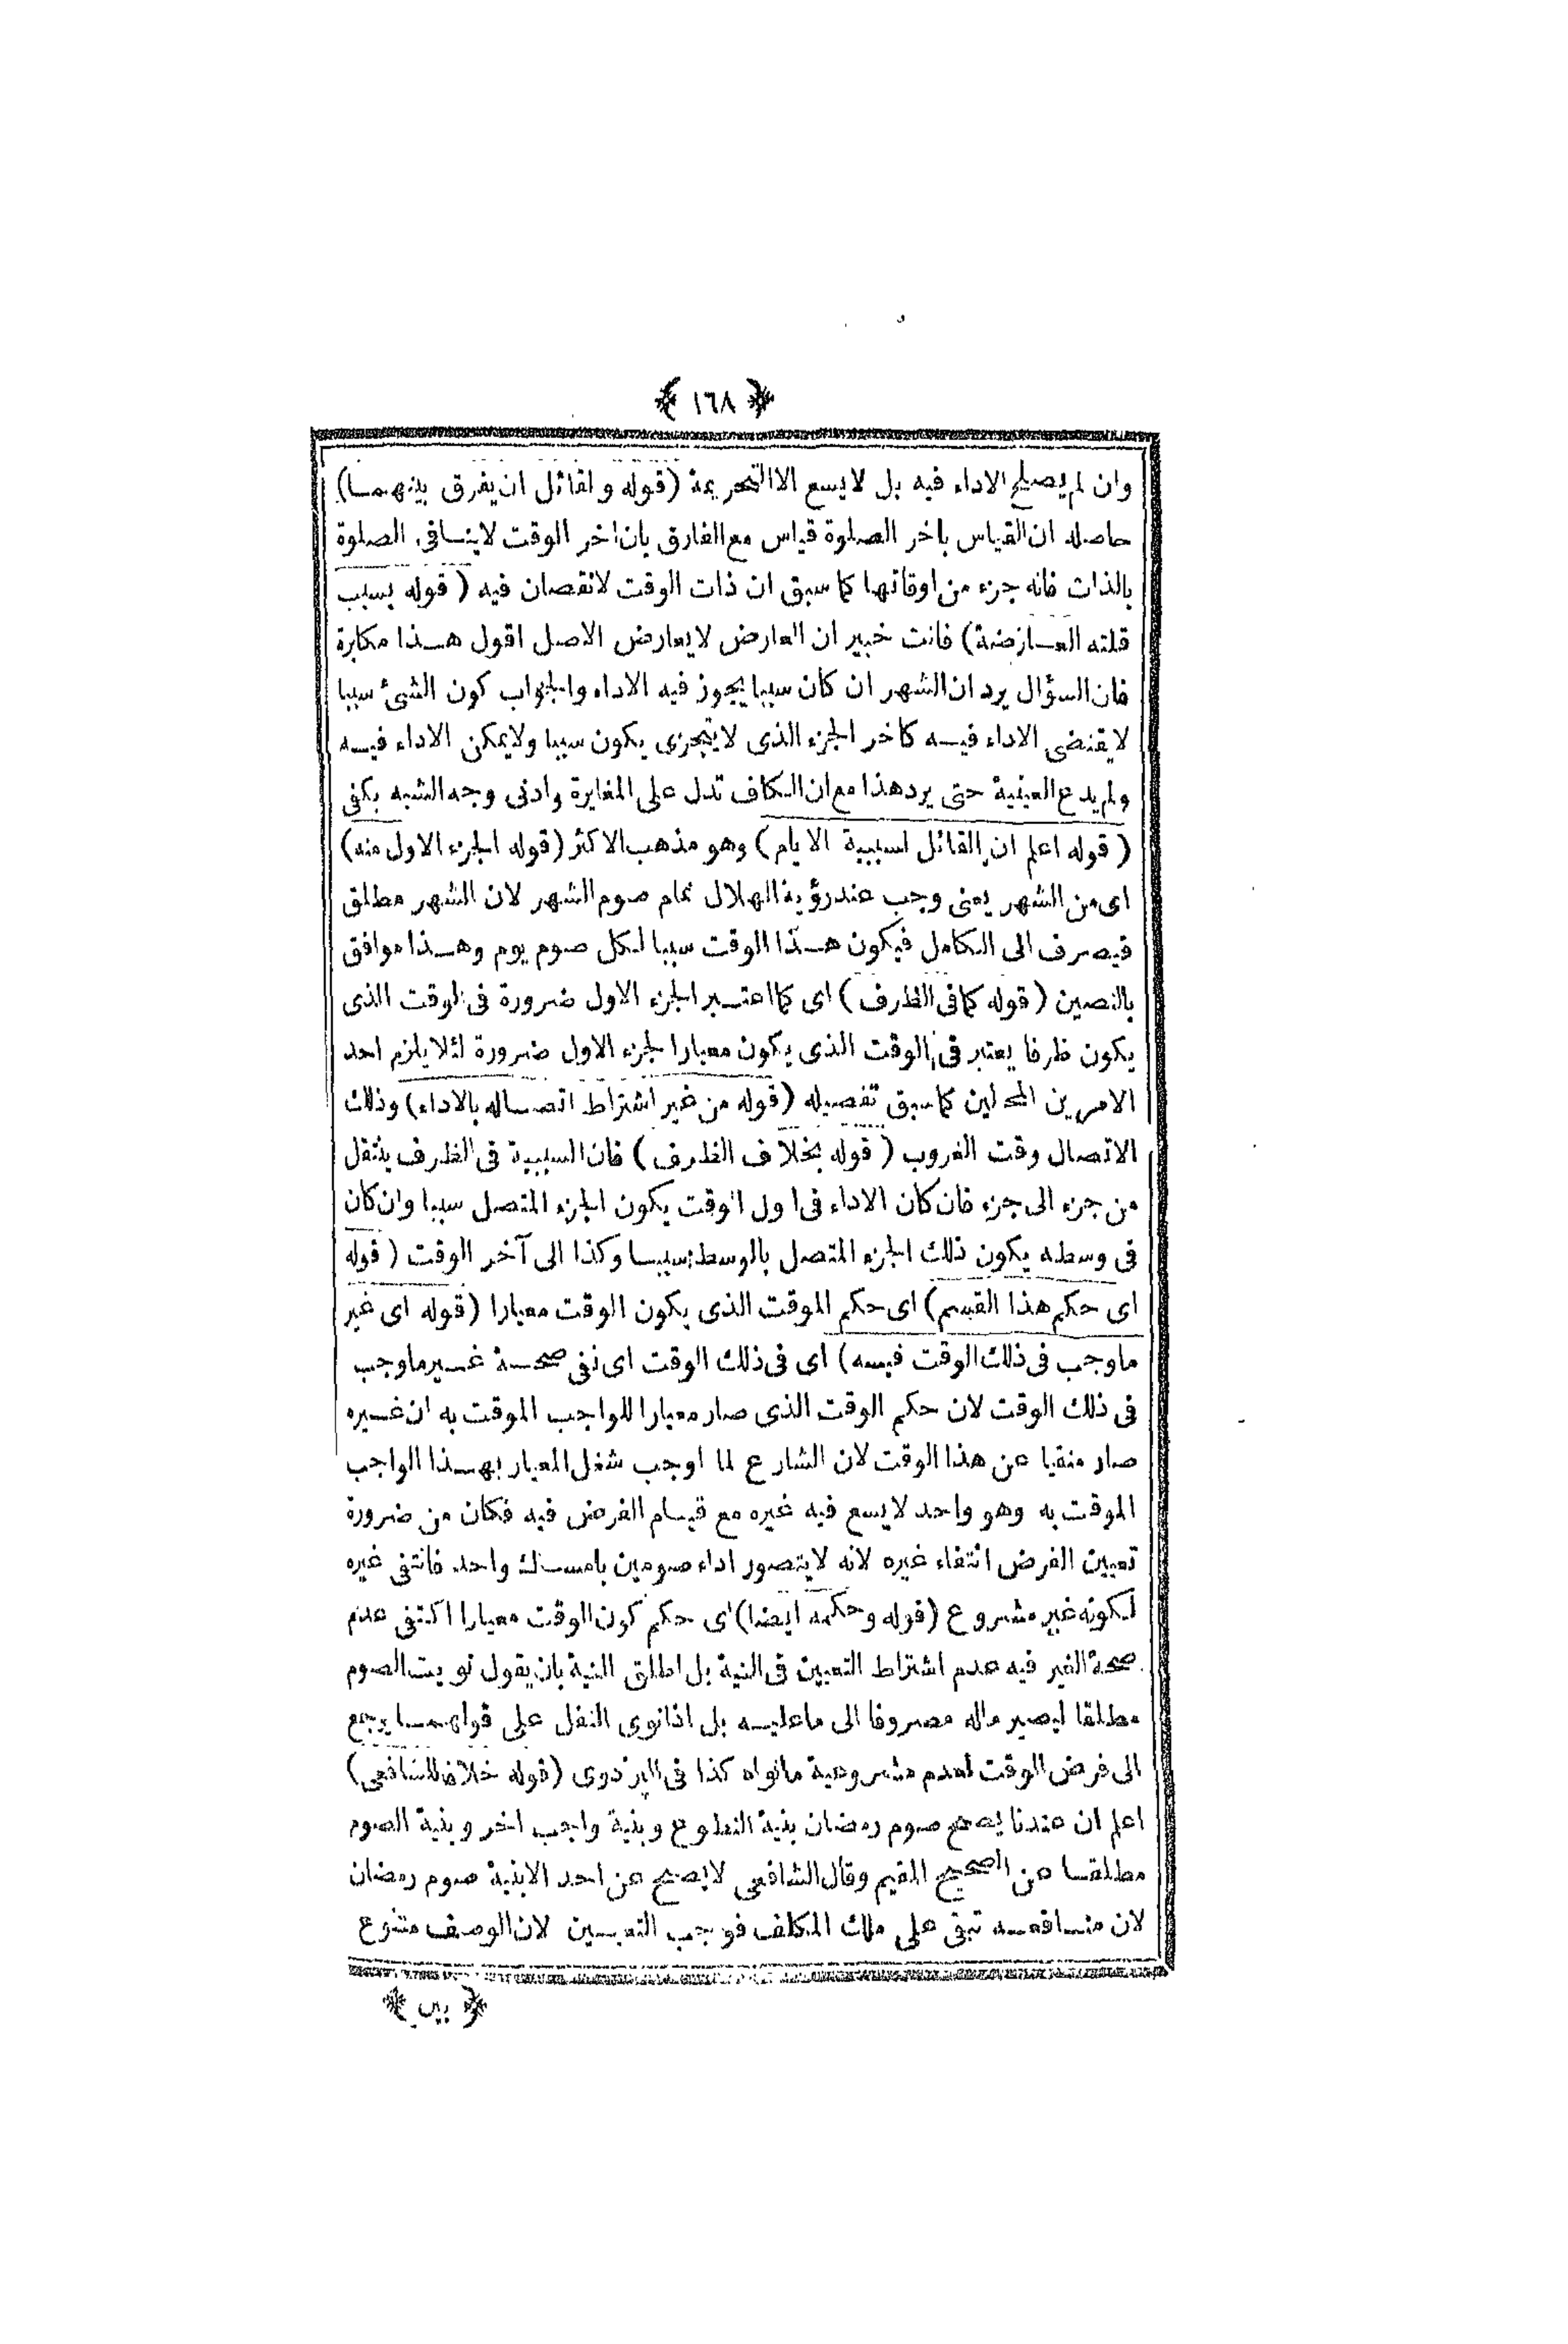 ﴿ ١٦٨ ﴾
وان لم يصلح الاداء فيه بل لايسع الا التحريمة (قوله ولقائل ان يفرق بينهما)
حاصله ان القياس باخر الصلوة قياس مع الفارق بان اخر الوقت لاينافى الصلوة
بالذات فانه جزء من اوقاتها كما سبق ان ذات الوقت لانقصان فيه (قوله بسبب
قلته العارضة) فانت خبير ان العارض لايعارض الاصل اقول هذا مكابرة
فان السؤال يرد ان الشهر ان كان سببا يجوز فيه الاداء والجواب كون الشئ سببا
لايقتضى الاداء فيه كاخر الجزء الذى لايتجزى يكون سببا ولايمكن الاداء فيه
ولم يدع العينية حتى يرد هذا مع ان الكاف تدل على المغايرة وادنى وجه الشبه يكفى
(قوله اعلم ان القائل لسببية الايام) وهو مذهب الاكثر (قوله الجزء الاول منه)
اى من الشهر يعنى وجب عند رؤية الهلال تمام صوم الشهر لان الشهر مطلق
فيصرف الى الكامل فيكون هذا الوقت سببا لكل صوم يوم وهذا موافق
بالنصين (قوله كما فى الظرف) اى كما اعتبر الجزء الاول ضرورة فى الوقت الذى
يكون ظرفا يعتبر فى الوقت الذى يكون معيارا لجزء الاول ضرورة لئلا يلزم احد
الامرين المحالين كما سبق تفصيله (قوله من غير اشتراط اتصاله بالاداء) وذلك
الاتصال وقت الغروب (قوله بخلاف الظرف) فان السببية فى الظرف ينتقل
من جزء الى جزء فان كان الاداء فى اول الوقت يكون الجزء المتصل سببا وان كان
فى وسطه يكون ذلك الجزء المتصل بالوسط سببا وكذا الى آخر الوقت (قوله
اى حكم هذا القسم) اى حكم الموقت الذى يكون الوقت معيارا (قوله اى غير
ماوجب فى ذلك الوقت فيه) اى فى ذلك الوقت اى نفى صحة غير ماوجب
فى ذلك الوقت لان حكم الوقت الذى صار معيارا للواجب الموقت به ان غيره
صار منفيا عن هذا الوقت لان الشارع لما اوجب شغل المعيار بهذا الواجب
الموقت به وهو واحد لايسع فيه غيره مع قيام الفرض فيه فكان من ضرورة
تعيين الفرض انتفاء غيره لانه لايتصور اداء صومين بامساك واحد فانتفى غيره
لكونه غير مشروع (قوله وحكمه ايضا) اى حكم كون الوقت معيارا اكتفى عدم
صحة الغير فيه عدم اشتراط التعيين فى النية بل اطلق النية بان يقول نويت الصوم
مطلقا ليصير ماله مصروفا الى ماعليه بل اذا نوى النفل على قولهما يرجع
الى فرض الوقت لعدم مشروعية مانواه كذا فى البزدوى (قوله خلافا للشافعى)
اعلم ان عندنا يصح صوم رمضان بنية التطوع وبنية واجب اخر وبنية الصوم
مطلقا عن الصحيح المقيم وقال الشافعى لايصح عن احد الابنية صوم رمضان
لان منافعه تبقى على ملك المكلف فوجب التعيين لان الوصف متنوع
﴿ بين ﴾